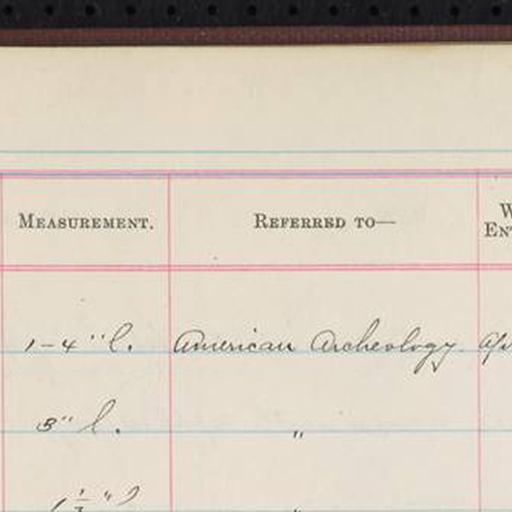 MEASUREMENT. REFERRED TO—
1-4" l. American Archeology
3" l. "